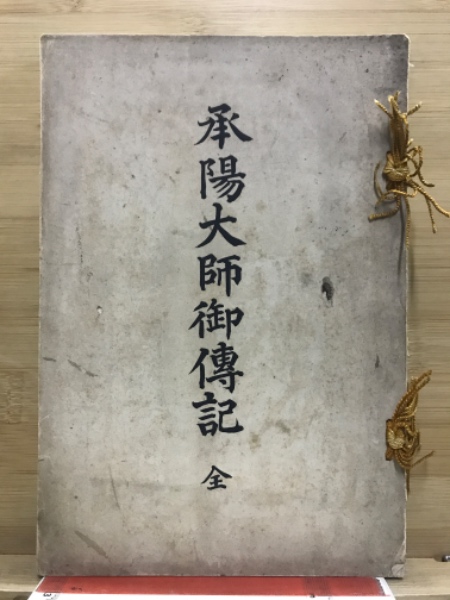 承陽大師御傳記
全